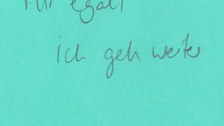 egal!
ich geh weiter